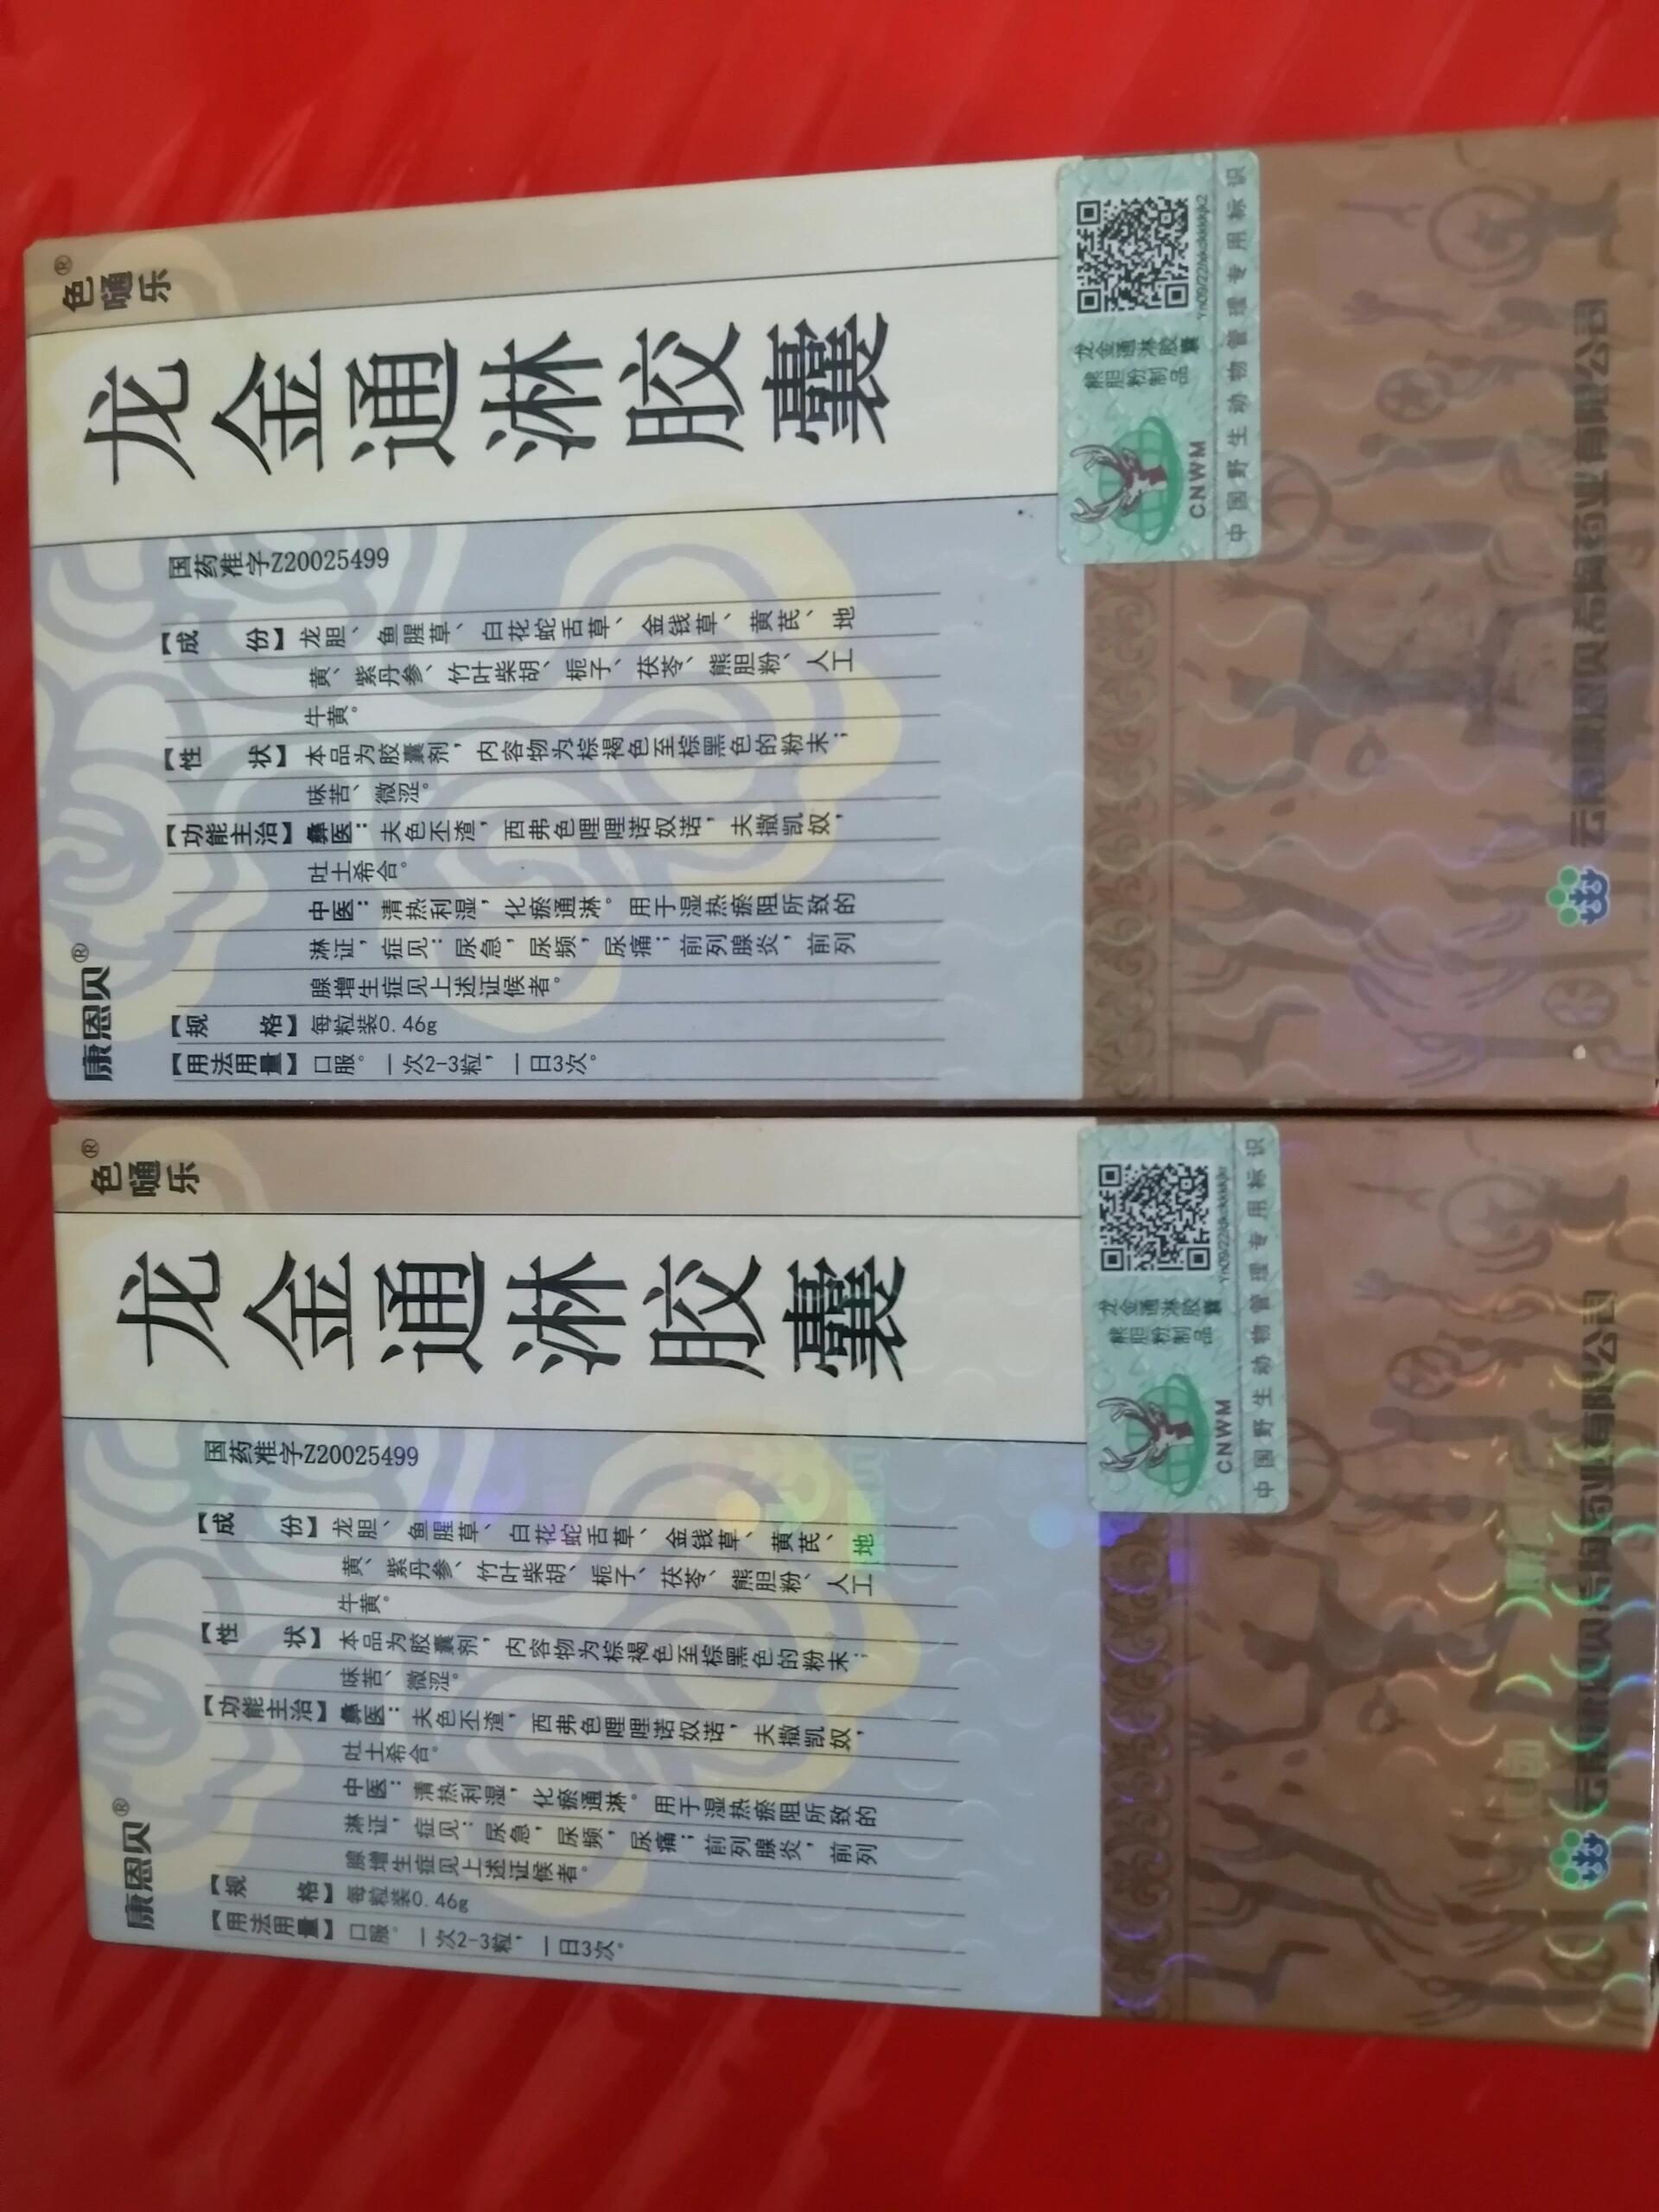 康恩贝®
色嗵乐®
龙金通淋胶囊
国药准字Z20025499
【成 份】龙胆、鱼腥草、白花蛇舌草、金钱草、黄芪、地
黄、紫丹参、竹叶柴胡、栀子、茯苓、熊胆粉、人工
牛黄。
【性 状】本品为胶囊剂，内容物为棕褐色至棕黑色的粉末；
味苦、微涩。
【功能主治】彝医：夫色丕渣，西弗色哩哩诺奴诺，夫撒凯奴，
吐土希合。
中医：清热利湿，化瘀通淋。用于湿热瘀阻所致的
淋证，症见：尿急，尿频，尿痛；前列腺炎，前列
腺增生症见上述证候者。
【规 格】每粒装0.46g
【用法用量】口服。一次2-3粒，一日3次。
CNWM
龙金通淋胶囊
熊胆粉制品
中国野生动物管理专用标识
云南康恩贝希陶药业有限公司
康恩贝®
色嗵乐®
龙金通淋胶囊
国药准字Z20025499
【成 份】龙胆、鱼腥草、白花蛇舌草、金钱草、黄芪、地
黄、紫丹参、竹叶柴胡、栀子、茯苓、熊胆粉、人工
牛黄。
【性 状】本品为胶囊剂，内容物为棕褐色至棕黑色的粉末；
味苦、微涩。
【功能主治】彝医：夫色丕渣，西弗色哩哩诺奴诺，夫撒凯奴，
吐土希合。
中医：清热利湿，化瘀通淋。用于湿热瘀阻所致的
淋证，症见：尿急，尿频，尿痛；前列腺炎，前列
腺增生症见上述证候者。
【规 格】每粒装0.46g
【用法用量】口服。一次2-3粒，一日3次。
CNWM
龙金通淋胶囊
熊胆粉制品
中国野生动物管理专用标识
云南康恩贝希陶药业有限公司